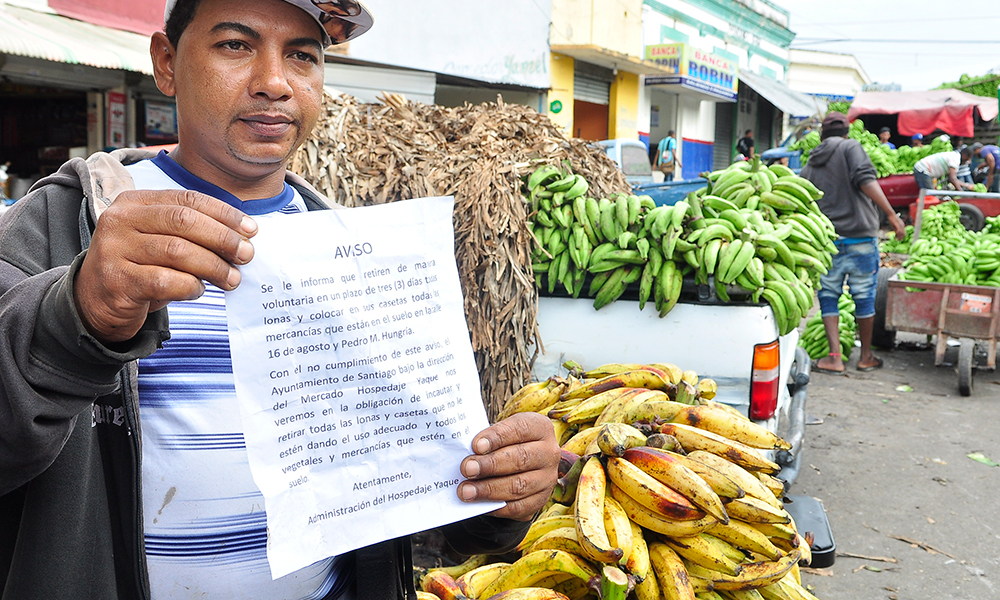 AVISO
Se le informa que retiren de manera
voluntaria en un plazo de tres (3) días todas
lonas y colocar en sus casetas todas las
mercancías que están en el suelo en la calle
16 de agosto y Pedro M. Hungría.
Con el no cumplimiento de este aviso, el
Ayuntamiento de Santiago bajo la dirección
del Mercado Hospedaje Yaque nos
veremos en la obligación de incautar y
retirar todas las lonas y casetas que no le
estén dando el uso adecuado y todos los
vegetales y mercancías que estén en el
suelo.
Atentamente,
Administración del Hospedaje Yaque
BANCA
ROBIN
BANCA
ROBIN